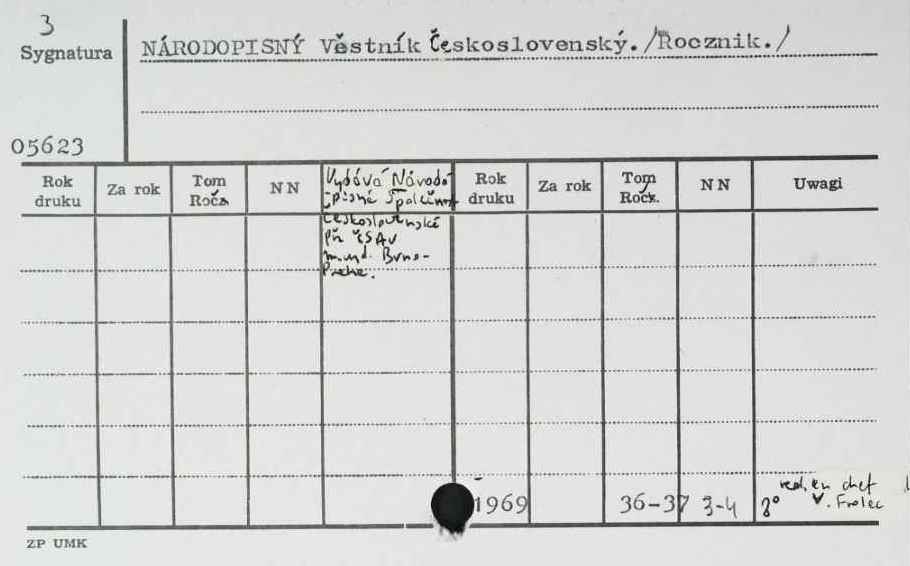 3
Sygnatura
NÁRODOPISNÝ Věstník Československý./Rocznik./
05623
Rok druku
Za rok
Tom Rocz.
NN
Vydává Národo
pisná Společnost
československá
při ČSAV
Brno-
Praha.
Rok druku
Za rok
Tom Rocz.
NN
Uwagi
1969
36-37
3-4
8°
red. en chef
V. Frolec
ZP UMK